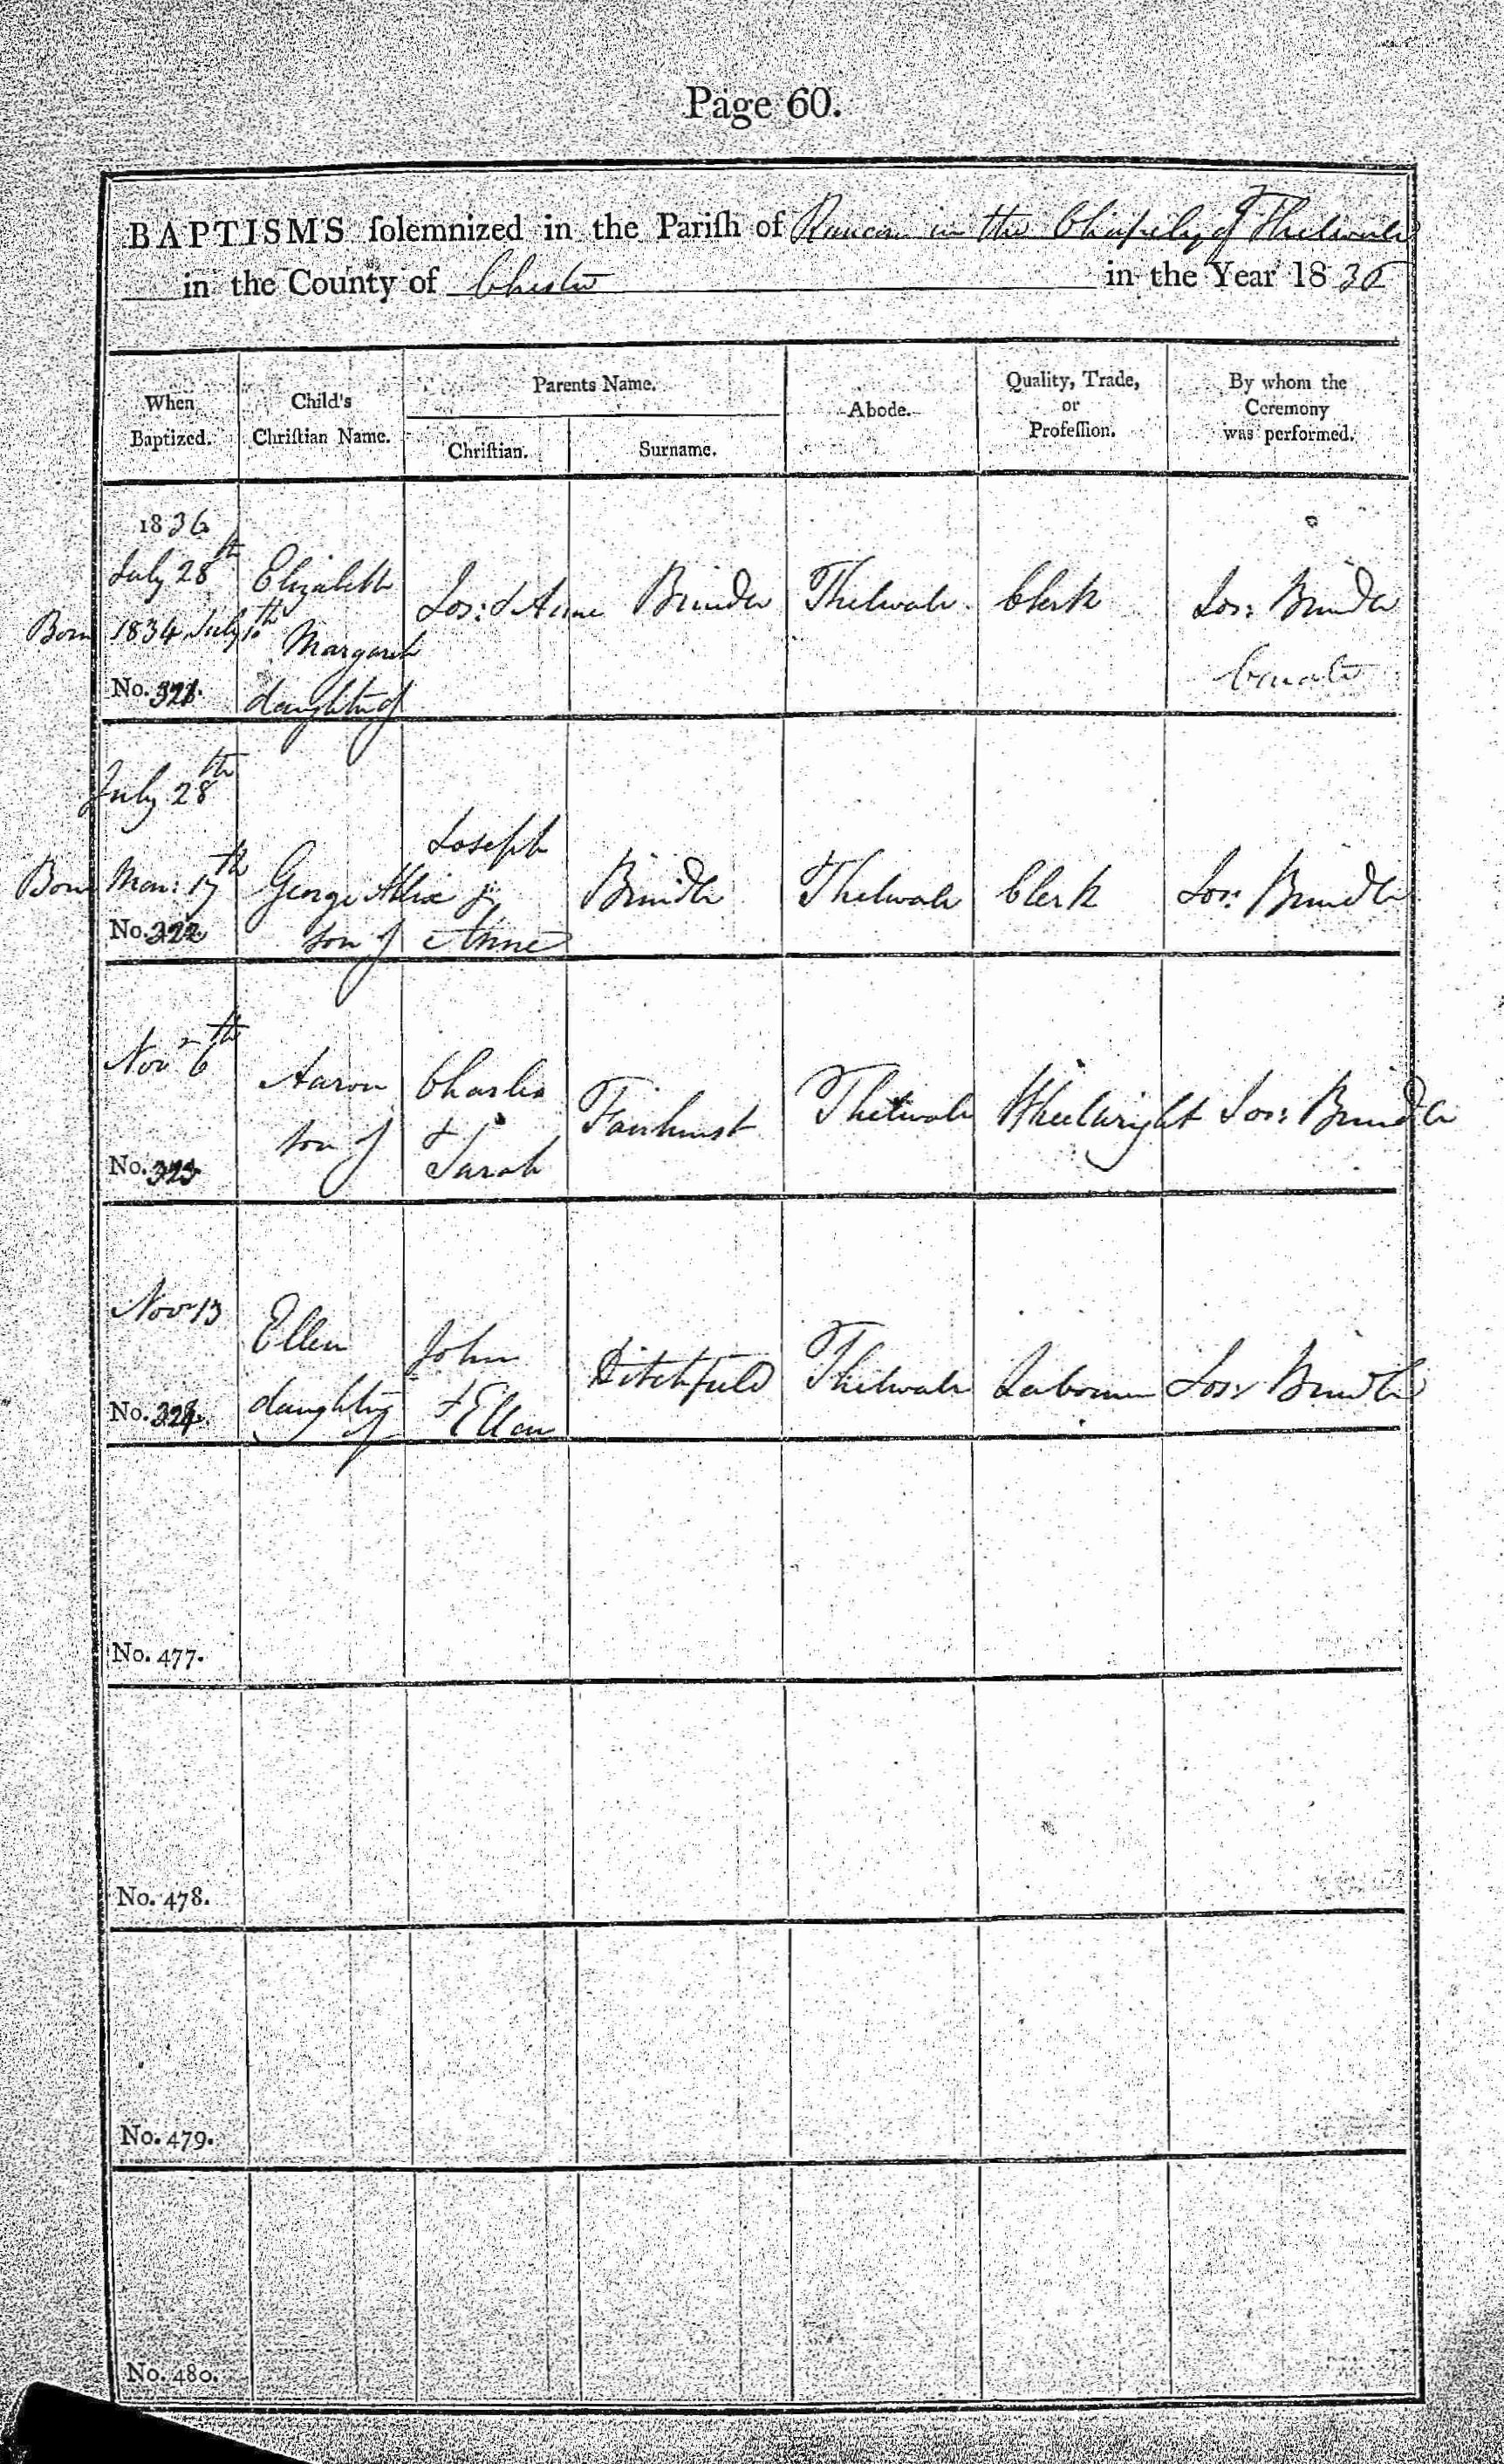 Page 60.
BAPTISMS ſolemnized in the Pariſh of Runcorn in the Chapelry of Thelwall
in the County of Chester in the Year 1836
When Baptized.
Child's Chriſtian Name.
Parents Name.
Chriſtian.
Surname.
Abode.
Quality, Trade, or Profeſſion.
By whom the Ceremony was performed.
1836
July 28th
Born 1834 July 10th
No. 321.
Elizabeth
Margaret
daughter of
Jos: & Anne
Brindle
Thelwall
Clerk
Jos: Brindle
Curate
July 28th
Born Mar: 17th
No. 322
George
son of
Joseph
&
Anne
Brindle
Thelwall
Clerk
Jos: Brindle
Novr 6th
No. 323
Aaron
son of
Charles
&
Sarah
Fairhurst
Thelwall
Wheelwright
Jos: Brindle
Novr 13
No. 324.
Ellen
daughter
of
John
& Ellen
Ditchfield
Thelwall
Labourer
Jos: Brindle
No. 477.
No. 478.
No. 479.
No. 480.